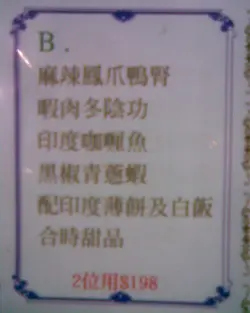 B.
麻辣鳳爪鴨腎
蝦肉冬陰功
印度咖喱魚
黑椒青蔥蝦
配印度薄餅及白飯
合時甜品
2位用$198